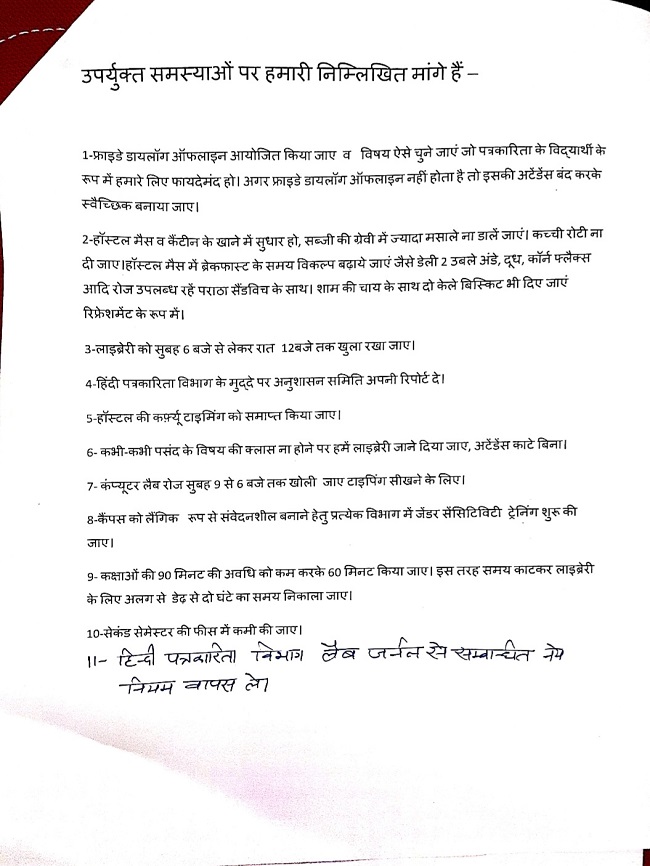 उपर्युक्त समस्याओं पर हमारी निम्लिखित मांगे हैं –
1-फ्राइडे डायलॉग ऑफलाइन आयोजित किया जाए व विषय ऐसे चुने जाएं जो पत्रकारिता के विद्यार्थी के
रूप में हमारे लिए फायदेमंद हो। अगर फ्राइडे डायलॉग ऑफलाइन नहीं होता है तो इसकी अटेंडेंस बंद करके
स्वैच्छिक बनाया जाए।
2-हॉस्टल मैस व कैंटीन के खाने में सुधार हो, सब्जी की ग्रेवी में ज्यादा मसाले ना डालें जाएं। कच्ची रोटी ना
दी जाए।हॉस्टल मैस में ब्रेकफास्ट के समय विकल्प बढ़ाये जाएं जैसे डेली 2 उबले अंडे, दूध, कॉर्न फ्लैक्स
आदि रोज उपलब्ध रहें पराठा सैंडविच के साथ। शाम की चाय के साथ दो केले बिस्किट भी दिए जाएं
रिफ्रेशमेंट के रूप में।
3-लाइब्रेरी को सुबह 6 बजे से लेकर रात 12बजे तक खुला रखा जाए।
4-हिंदी पत्रकारिता विभाग के मुद्दे पर अनुशासन समिति अपनी रिपोर्ट दे।
5-हॉस्टल की कर्फ़्यू टाइमिंग को समाप्त किया जाए।
6- कभी-कभी पसंद के विषय की क्लास ना होने पर हमें लाइब्रेरी जाने दिया जाए, अटेंडेंस काटे बिना।
7- कंप्यूटर लैब रोज सुबह 9 से 6 बजे तक खोली जाए टाइपिंग सीखने के लिए।
8-कैंपस को लैंगिक रूप से संवेदनशील बनाने हेतु प्रत्येक विभाग में जेंडर सेंसिटिविटी ट्रेनिंग शुरू की
जाए।
9- कक्षाओं की 90 मिनट की अवधि को कम करके 60 मिनट किया जाए। इस तरह समय काटकर लाइब्रेरी
के लिए अलग से डेढ़ से दो घंटे का समय निकाला जाए।
10-सेकंड सेमेस्टर की फीस में कमी की जाए।
11- हिन्दी पत्रकारिता विभाग लैब जर्नल से सम्बान्धित नये
नियम वापस ले।